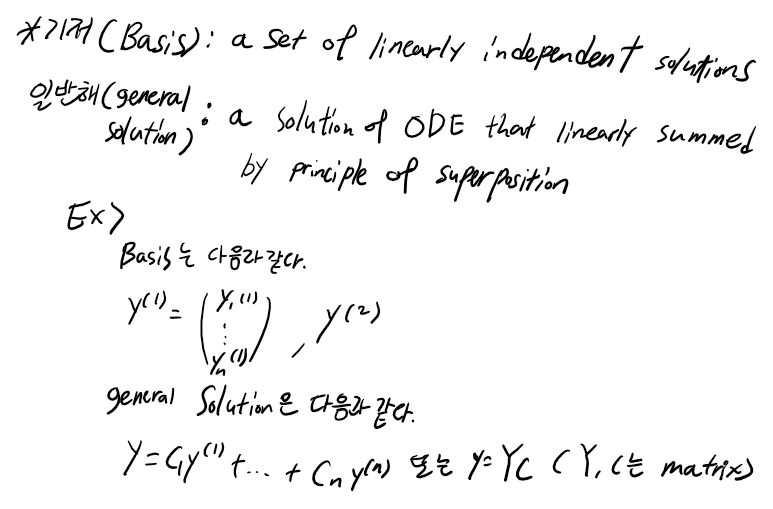 *기저(Basis): a set of linearly independent solutions
일반해(general solution): a solution of ODE that linearly summed
by principle of superposition
Ex>
Basis는 다음과 같다.
y⁽¹⁾ = (y₁⁽¹⁾ ⋮ yₙ⁽¹⁾), y⁽²⁾
general solution은 다음과 같다.
y = C₁y⁽¹⁾ + ... + Cₙy⁽ⁿ⁾ 또는 y = Yc (Y, c는 matrix)